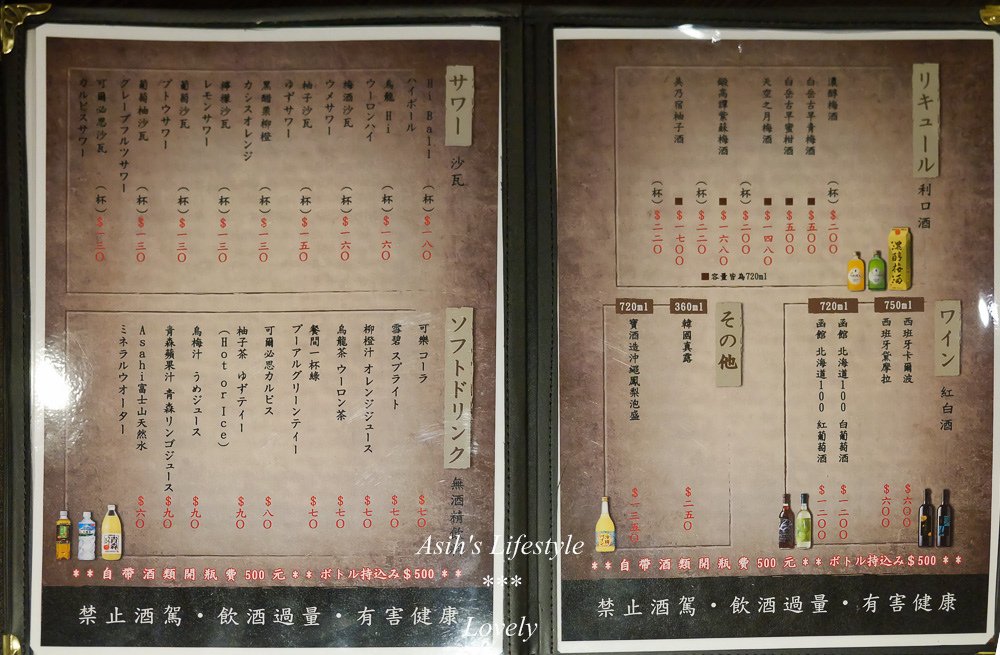 サワー 沙瓦
Hi Ball
ハイボール
(杯) $一八〇
烏龍 Hi
ウーロンハイ
(杯) $一六〇
梅酒沙瓦
ウメサワー
(杯) $一六〇
柚子沙瓦
ゆずサワー
(杯) $一五〇
黑醋栗柳橙
カシスオレンジ
(杯) $一三〇
檸檬沙瓦
レモンサワー
(杯) $一三〇
葡萄沙瓦
ブトウサワー
(杯) $一三〇
葡萄柚沙瓦
グレープフルツサワー
(杯) $一三〇
可爾必思沙瓦
カルピスサワー
(杯) $一三〇
ソフトドリンク 無酒精飲
可樂 コーラ $七〇
雪碧 スプライト $七〇
柳橙汁 オレンジジュース $七〇
烏龍茶 ウーロン茶 $七〇
餐間一杯綠 $七〇
プーアルグリーンティー
可爾必思カルピス $八〇
柚子茶 ゆずティー $九〇
(Hot or Ice)
烏梅汁 うめジュース $九〇
青森蘋果汁 青森リンゴジュース $九〇
Asahi富士山天然水 $六〇
ミネラルウオーター
**自帶酒類開瓶費 500 元** ボトル持込み$500 **
禁止酒駕・飲酒過量・有害健康
リキュール 利口酒
濃醇梅酒 (杯) $二〇〇
白岳古早青梅酒 ■ $五〇〇
白岳古早蜜柑酒 ■ $五〇〇
天空之月梅酒 ■ $一四八〇
(杯) $二〇〇
鍛高譚紫蘇梅酒 ■ $一六八〇
(杯) $二二〇
美乃宿柚子酒 ■ $一七〇〇
(杯) $二二〇
■容量皆為720ml
ワイン 紅白酒
750ml
西班牙卡爾波 $六〇〇
西班牙黛摩拉 $六〇〇
720ml
函館 北海道100 白葡萄酒 $一二〇〇
函館 北海道100 紅葡萄酒 $一二〇〇
その他
360ml
韓國真露 $二五〇
720ml
寶酒造沖繩鳳梨泡盛 $一三五〇
**自帶酒類開瓶費 500 元** ボトル持込み$500 **
禁止酒駕・飲酒過量・有害健康
Asih's Lifestyle
***
Lovely